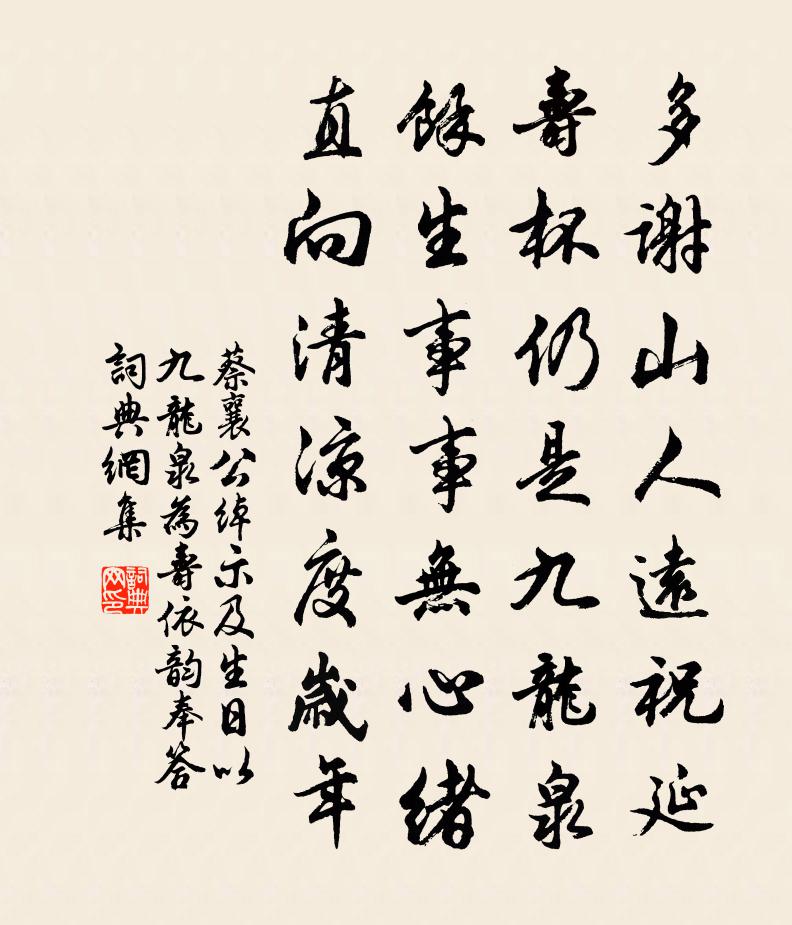 多謝山人遠祝延
壽杯仍是九龍泉
餘生事事無心緒
直向清涼度歲年
蔡襄公綽示及生日以
九龍泉為壽依韵奉答
詞典網集
詞典網印